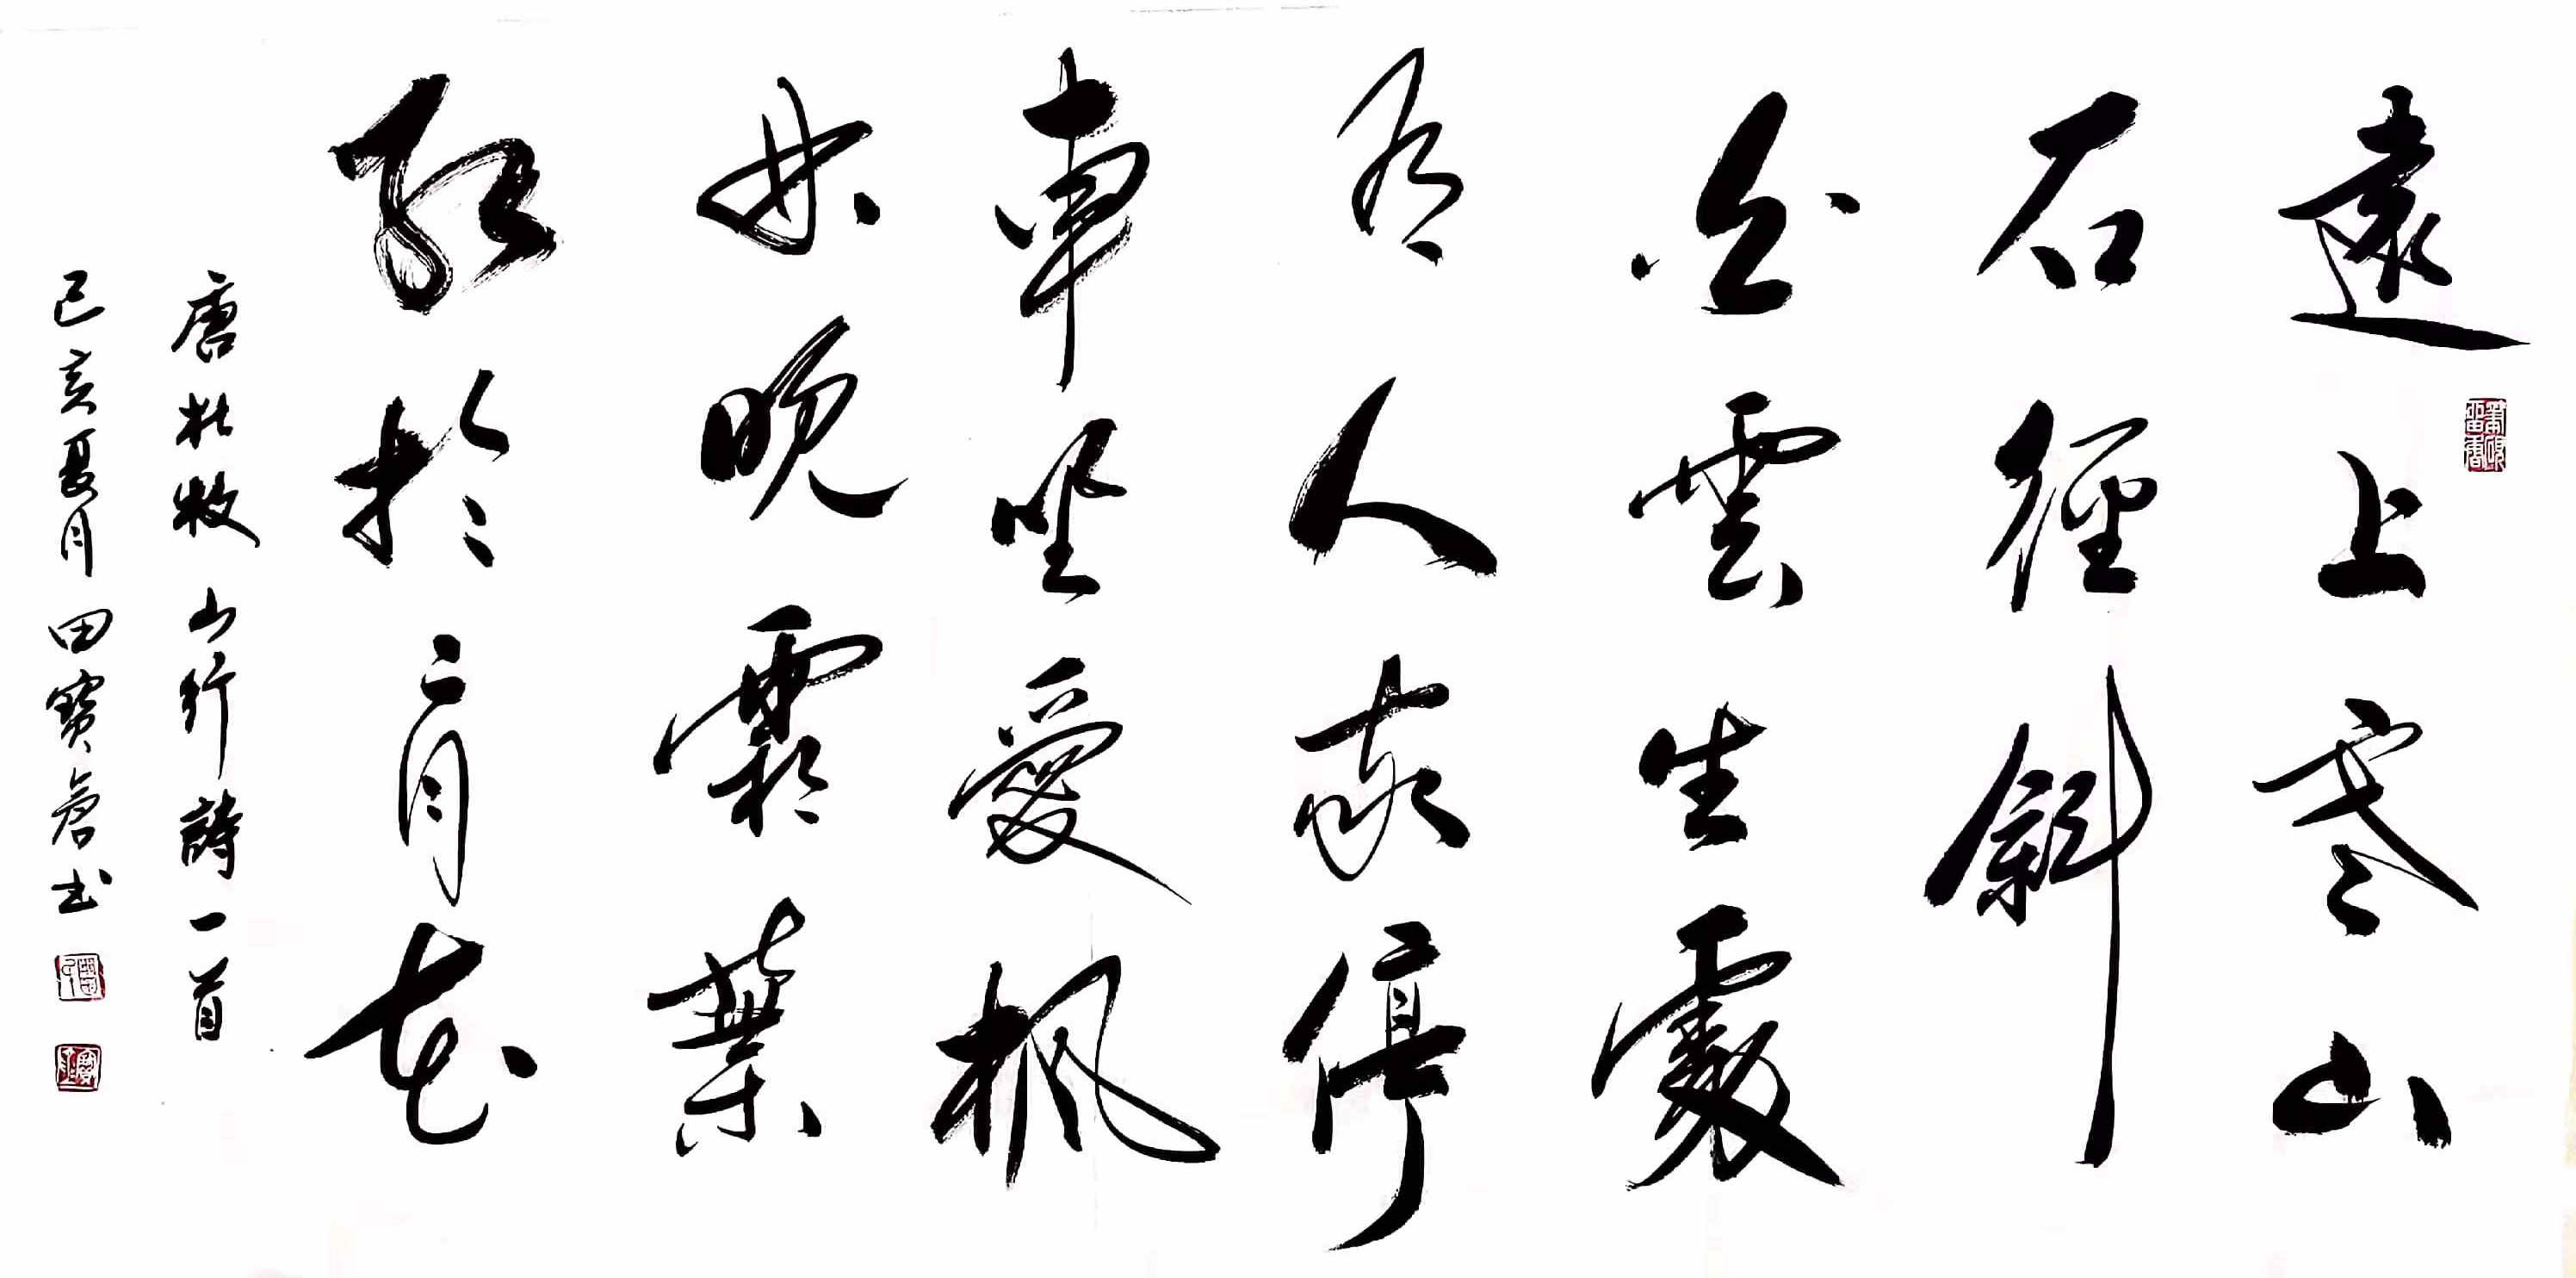 遠上寒山
石徑斜
白雲生處
有人家停
車坐愛楓
林晚霜葉
紅於二月花
唐杜牧山行詩一首
己亥夏月田寶倉书